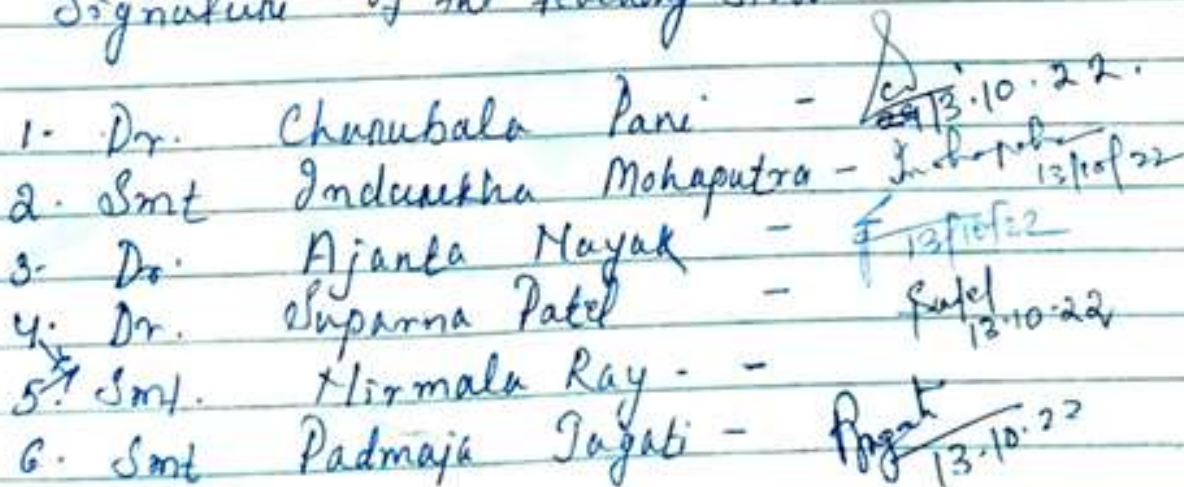 Signature of the teaching staff
1. Dr. Charubala Pani - 13.10.22.
2. Smt Indurekha Mohapatra - 13/10/22
3. Dr. Ajanta Nayak - 13/10/22
4. Dr. Suparna Patel - Patel 13.10.22
5. Smt. Nirmala Ray - -
6. Smt Padmaja Jagati - 13.10.22